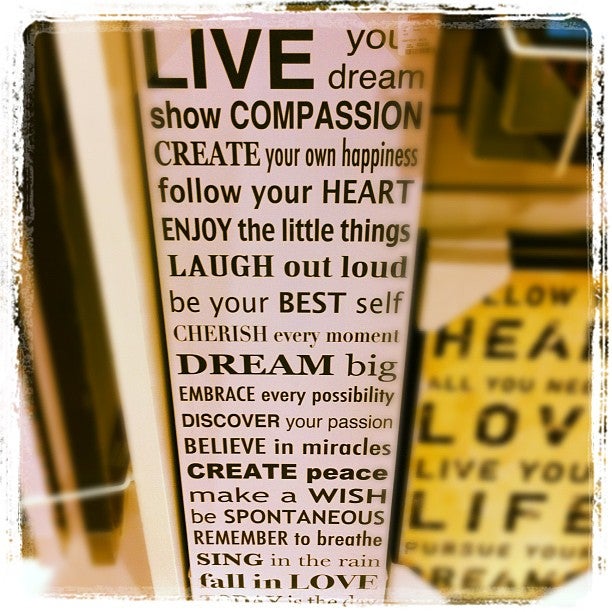 LIVE
dream
show COMPASSION
CREATE your own happiness
follow your HEART
ENJOY the little things
LAUGH out loud
be your BEST self
CHERISH every moment
DREAM big
EMBRACE every possibility
DISCOVER your passion
BELIEVE in miracles
CREATE peace
make a WISH
be SPONTANEOUS
REMEMBER to breathe
SING in the rain
fall in LOVE
TODAY is the day
ALL YOU
LIVE YOU
LIFE
PURSUE YOUR